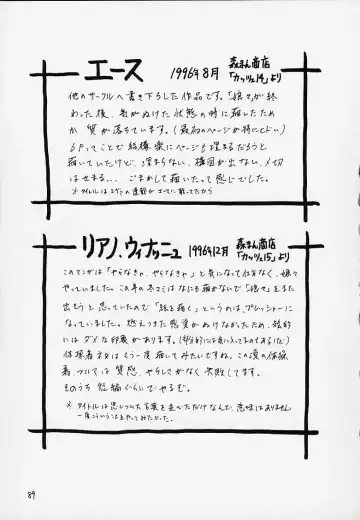 エース 1996年8月 森まん商店「カッツェ14」より
他のサークルへ書き下ろした作品です。「娘々」が終
わった後、気がぬけた状態の時に描いたため
か 質が落ちています。(最初のページが特にひどい)
6Pってことで結構楽にページも埋まるだろうと
描いていたけど、埋まらない、構図が出ない、〆切
はせまる… ごまかして描いたって感じでした。
リアノ・ウィナッニュ 1996年12月 森まん商店「カッツェ15」より
このマンガは「やらなきゃ、やらなきゃ」と気になって仕方なく、嫌々
やっていました。この年の冬コミはなにも描かないで「娘々」をまた
出そうと思っていたので「絵を描く」というのは、プレッシャーに
なっていました。燃えつきた感覚がぬけなかったため、総的
には ダメな印象があります。
体操着ネタはもう一度描いてみたいですね。この漫の体操
着、ブルマは 質感、やらしさがなく失敗してます。
そのうち 短編ぐらいでやるぞ。
※ タイトルは思いついた言葉を並べただけなんで、意味はありません
一度こういうことをやってみたかった。
89